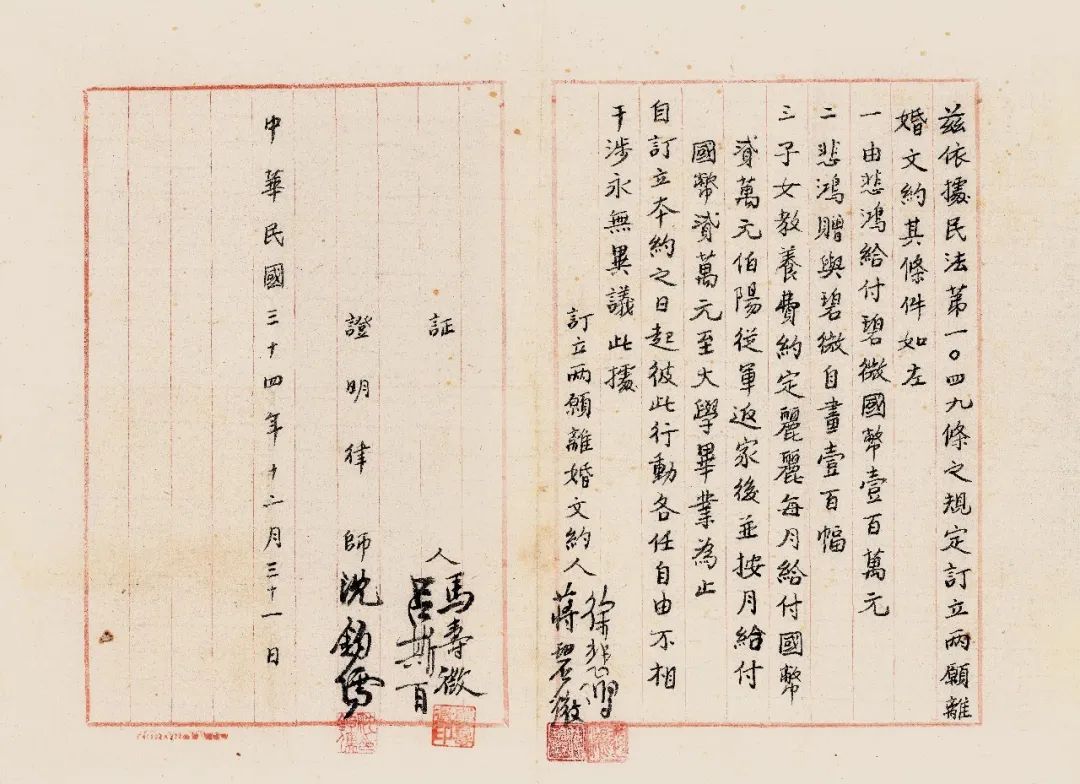 茲依據民法第一〇四九條之規定訂立兩願離
婚文約其條件如左
一由悲鴻給付碧微國幣壹百萬元
二悲鴻贈與碧微自畫壹百幅
三子女教養費約定麗麗每月給付國幣
貳萬元伯陽從軍返家後並按月給付
國幣貳萬元至大學畢業為止
自訂立本約之日起彼此行動各任自由不相
干涉永無異議此據
訂立兩願離婚文約人 徐悲鴻
蔣碧微
証 人 馬壽徵
呂斯百
證明律師 沈鈞儒
中華民國三十四年十二月三十一日